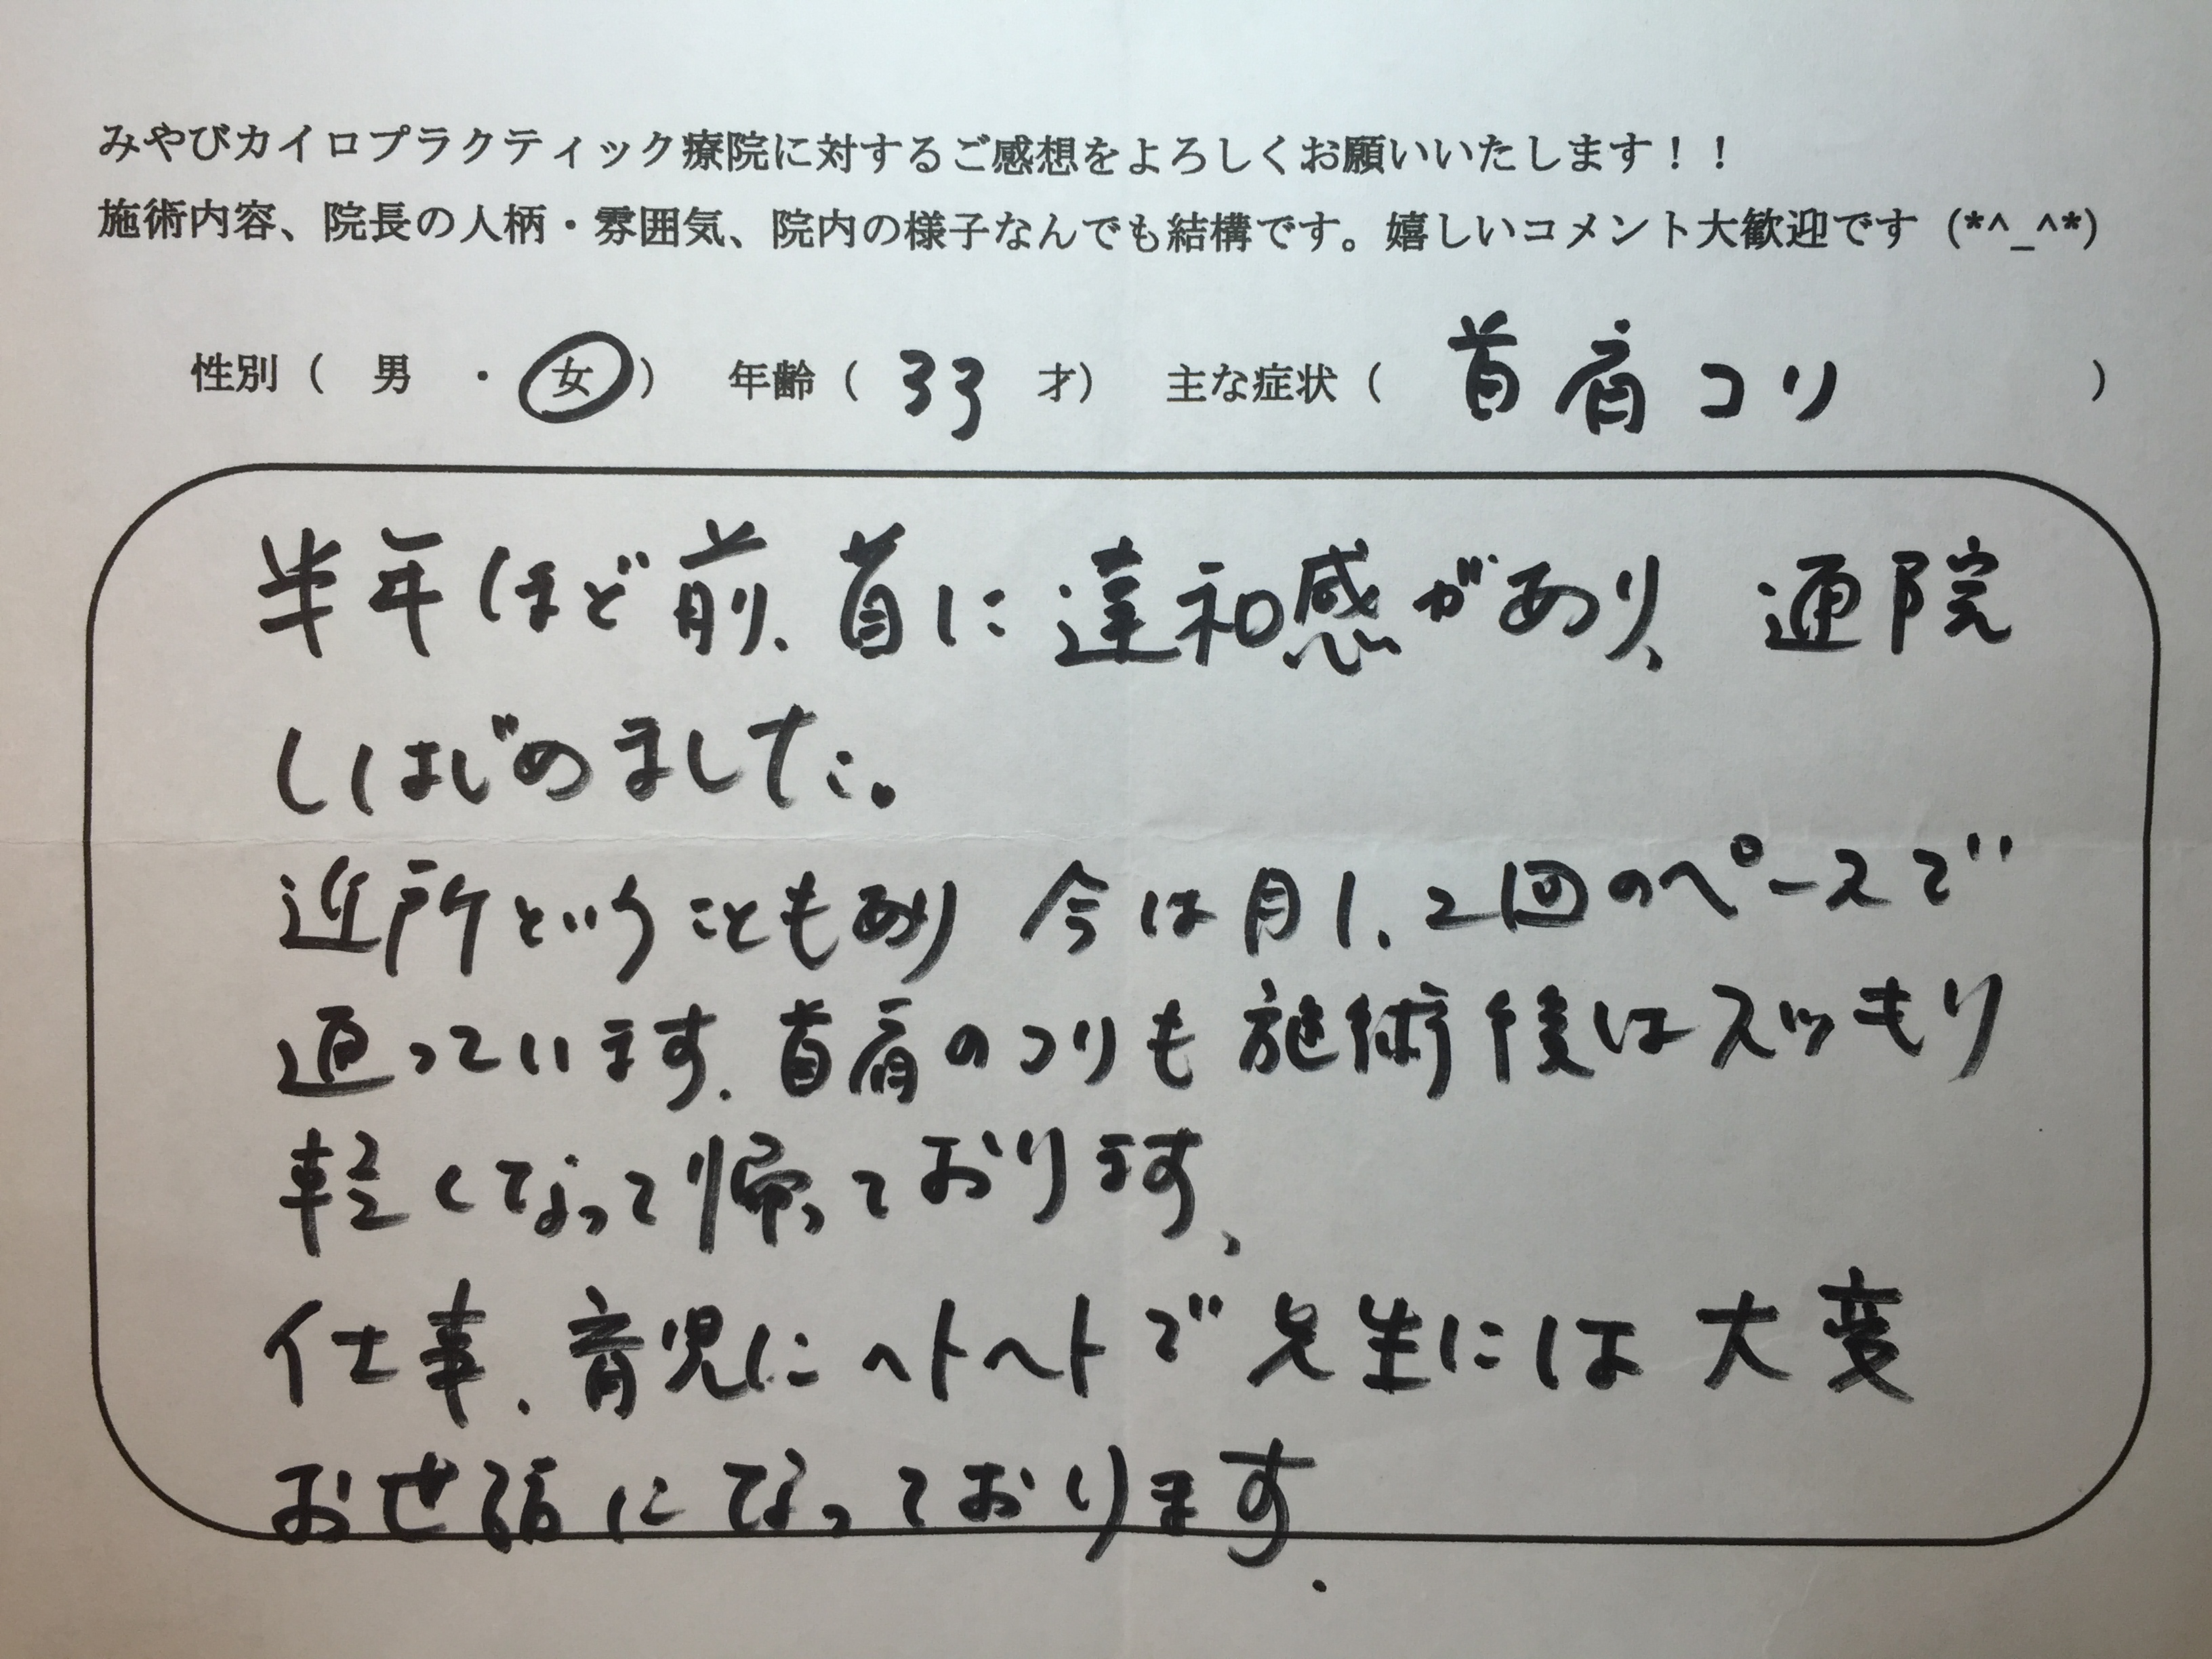 みやびカイロプラクティック療院に対するご感想をよろしくお願いいたします！！
施術内容、院長の人柄・雰囲気、院内の様子なんでも結構です。嬉しいコメント大歓迎です（*^_^*）
性別（　男　・　女　）　年齢（　33　才）　主な症状（　首肩コリ　）
半年ほど前、首に違和感があり、通院
しはじめました。
近所ということもあり 今は月1、2回のペースで
通っています。首肩のコリも施術後はスッキリ
軽くなって帰っております。
仕事、育児にヘトヘトで先生には大変
お世話になっております。